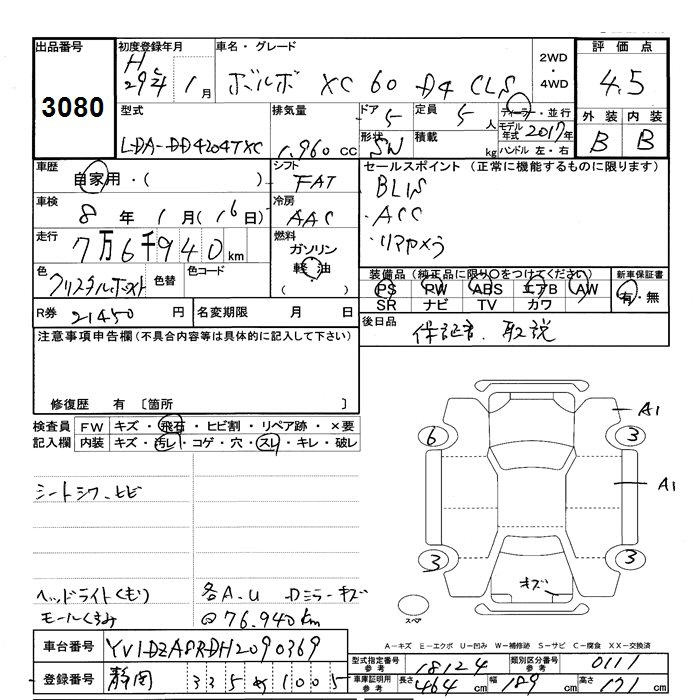 出品番号
3080
初度登録年月
H 29年 1月
車名・グレード
ボルボ XC 60 D4 CLS
2WD・4WD
評価点
4.5
外装 内装
B B
型式
LDA-DD4204TXC
排気量
1,960 CC
ドア 5
形状 SW
定員 5人
積載 kg
ディーラー・並行
モデル年式 2017年
ハンドル 左・右
車歴
自家用・( )
シフト
FAT
セールスポイント (正常に機能するものに限ります)
BLIS
・ACC
・リアカメラ
車検
8年 1月(16日)
冷房
AAC
走行
7万6千940km
燃料
ガソリン
軽油
( )
色
クリスタルホワイト
色替
色コード
装備品(純正品に限り○をつけてください)
PS PW ABS エアB AW
SR ナビ TV カワ
新車保証書
有・無
R券 21450円
名変期限 月 日
後日品
保証書、取説
注意事項申告欄(不具合内容等は具体的に記入して下さい)
修復歴 有 〔箇所 〕
検査員記入欄
FW キズ・飛石・ヒビ割・リペア跡・×要
内装 キズ・汚レ・コゲ・穴・スレ・キレ・破レ
シートシワ、ヒビ
ヘッドライトくもり
モールくすみ
各A.U Dミラーキズ
@76,940km
A1
6
3
A1
3
3
キズ
スペア
A-キズ E-エクボ U-凹み W-補修跡 S-サビ C-腐食 XX-交換済
車台番号 YV1DZA8RDH2090369
登録番号 静岡 335 1005
型式指定番号参考 18124
類別区分番号参考 0111
車庫証明用参考 長さ 464cm 幅 189cm 高さ 171cm